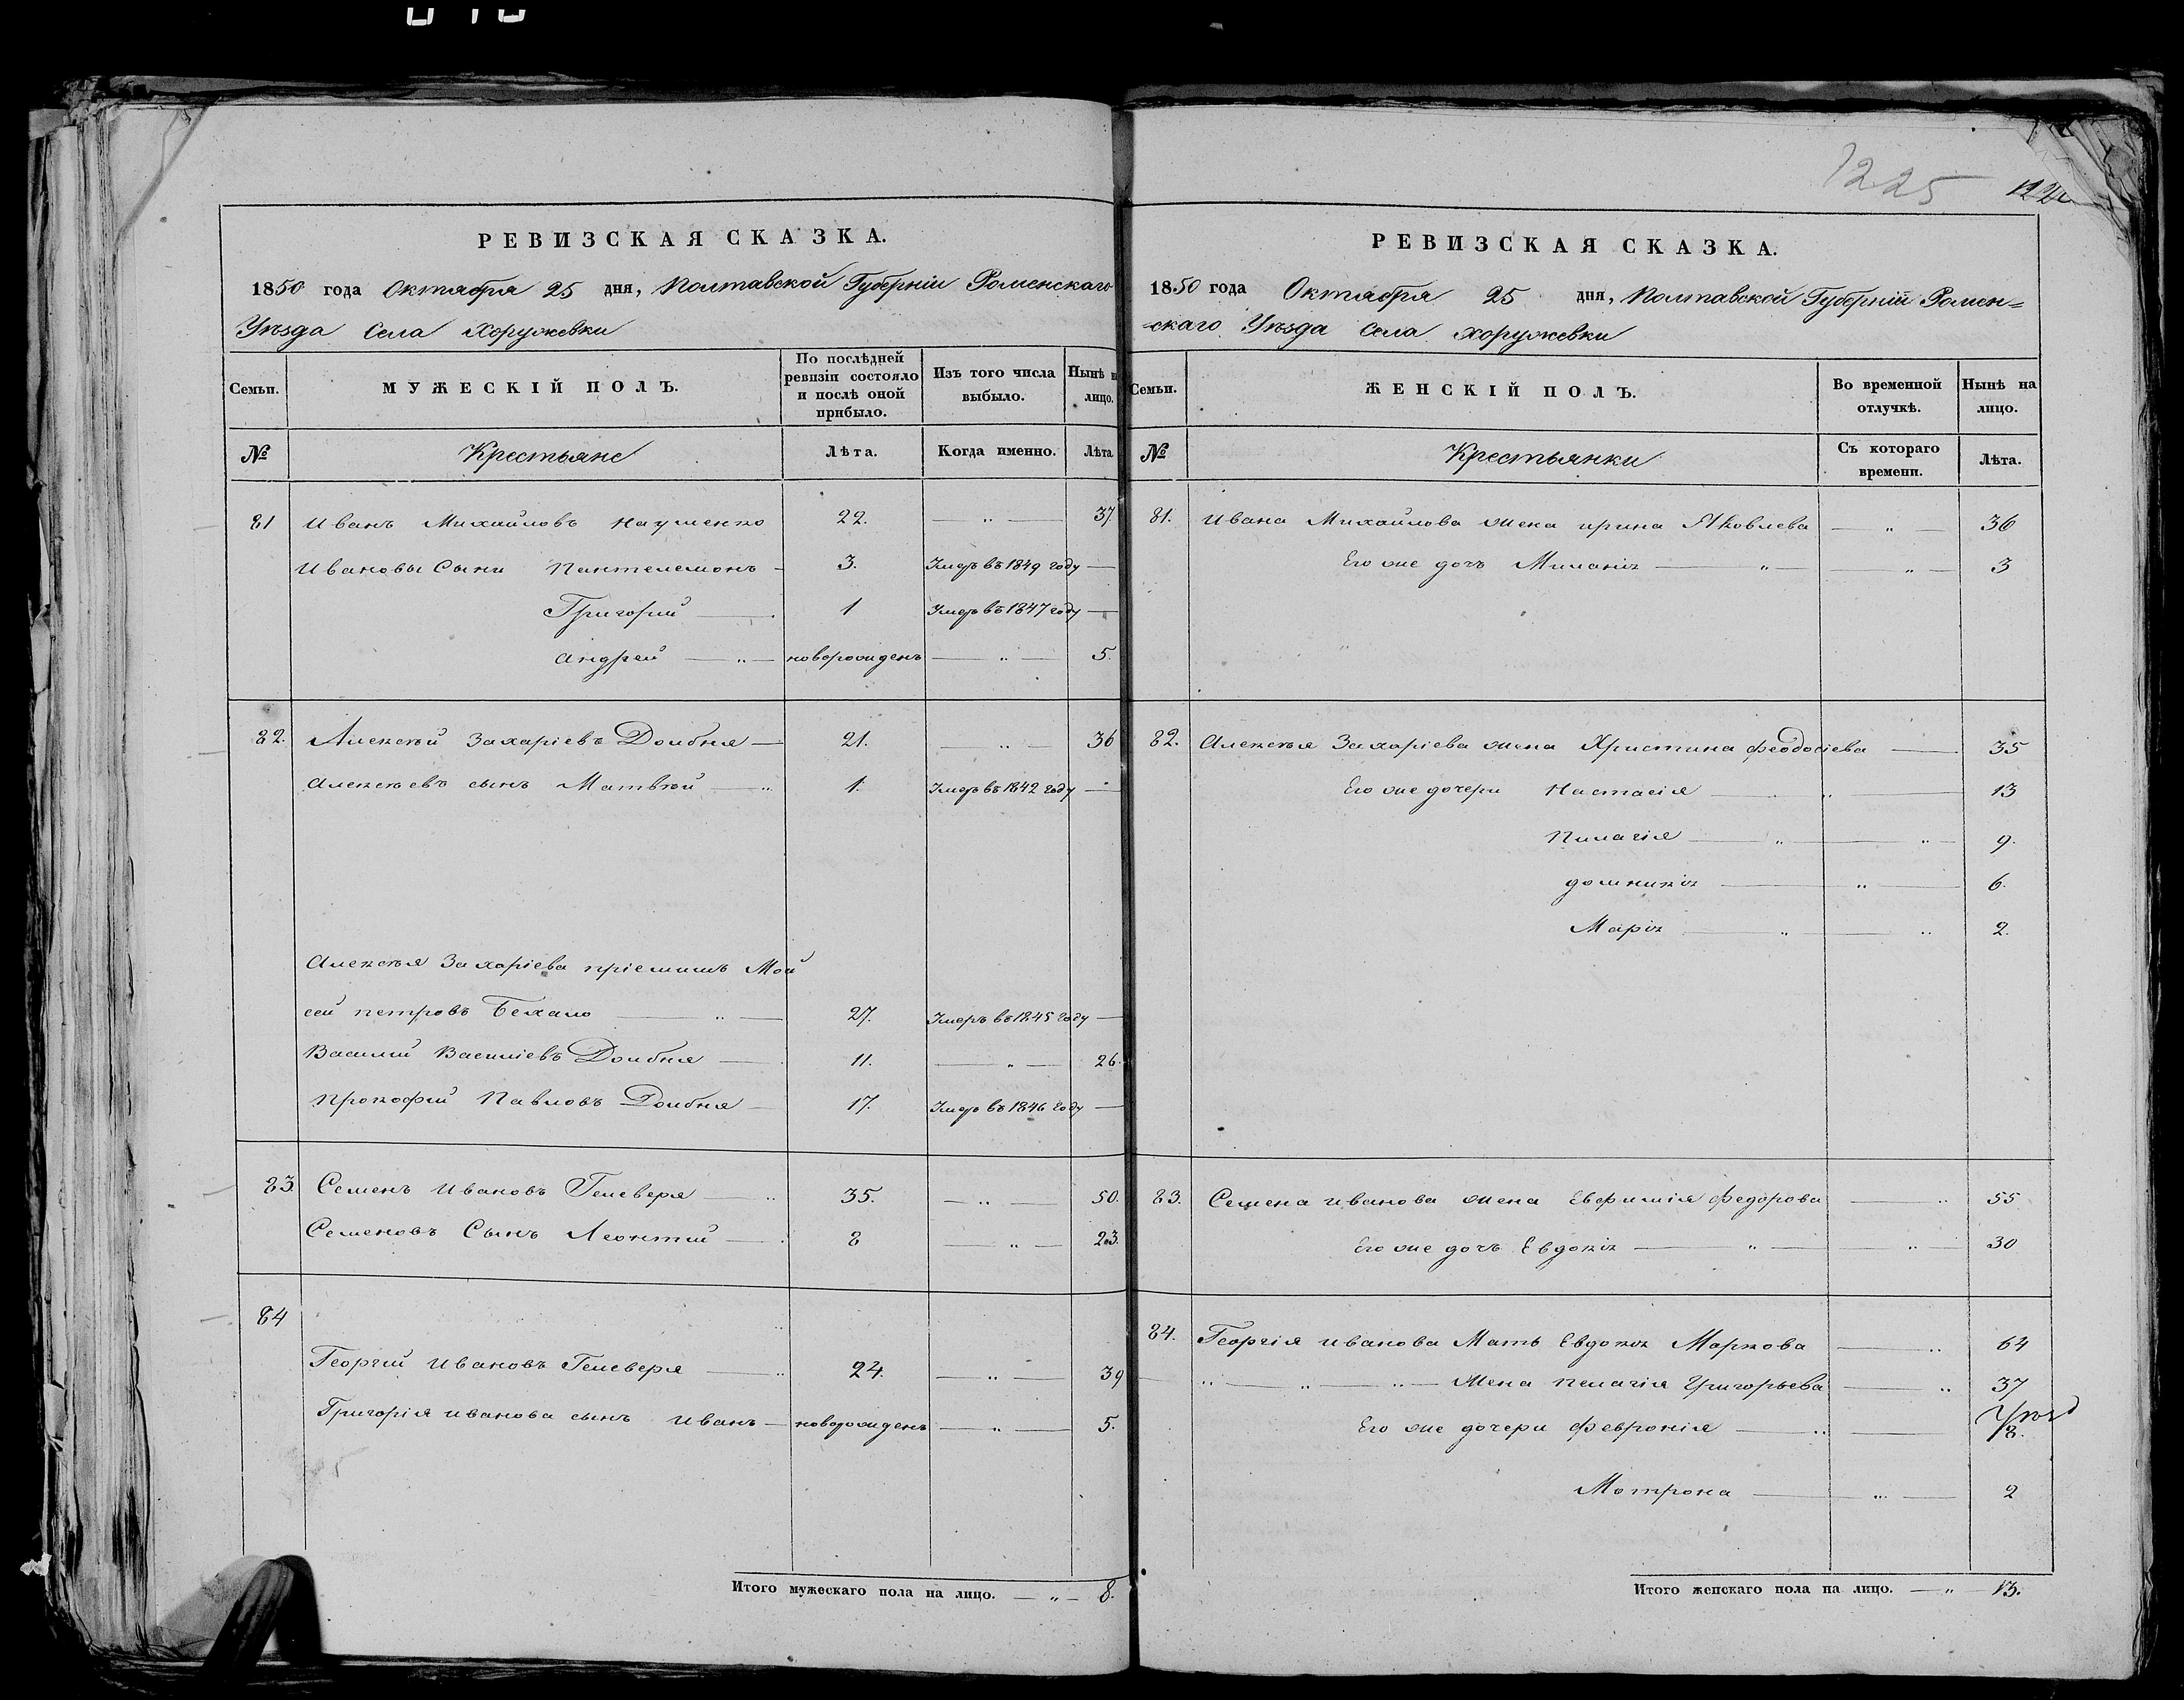 1225
РЕВИЗСКАЯ СКАЗКА.
1850 года Октября 25 дня, Полтавской Губерніи Роменскаго
Уѣзда Села Хоружевки
Семьи.
МУЖЕСКІЙ ПОЛЪ.
По послѣдней ревизіи состояло и послѣ оной прибыло.
Изъ того числа выбыло.
Нынѣ на лицо.
№ Крестьяне Лѣта. Когда именно. Лѣта
81 Иванъ Михайловъ Науменко 22. — " — 37
Ивановы Сыни Пантелемонъ — 3. Умеръ въ 1849 году —
Григорий — 1 Умеръ въ 1847 году —
Андрей — " — новорожденъ — " — 5.
82. Алексѣй Захаріевъ Долбня — 21. — " — 36
Алексѣевъ сынъ Матвѣй — " 1. Умеръ въ 1842 году —
Алексѣя Захаріева пріемишъ Мой
сей Петровъ Бехало — " — 27. Умеръ въ 1845 году —
Василий Василіевъ Долбня — 11. — " — 26.
Прокофий Павловъ Долбня — 17. Умеръ въ 1846 году —
83. Семенъ Ивановъ Гелеверя — " 35. — " — 50.
Семеновъ Сынъ Леонтий — 8 — " — 23.
84
Георгий Ивановъ Гелеверя — " 24. — " — 39
Григорія Иванова сынъ Иванъ — новорожденъ — " — 5.
Итого мужескаго пола на лицо. — " — 8.
РЕВИЗСКАЯ СКАЗКА.
1850 года Октября 25 дня, Полтавской Губерній Ромен=
=скаго Уѣзда Села Хоружевки
Семьи.
ЖЕНСКІЙ ПОЛЪ.
Во временной отлучкѣ.
Нынѣ на лицо.
№ Крестьянки Съ котораго времени. Лѣта.
81. Ивана Михайлова жена Ирина Яковлева — " — 36
Его же дочъ Миланія — " — — " — 3
82. Алексѣя Захаріева жена Христина Феодосіева — 35
Его же дочери Настасія — " — 13
Пилагія — " — — " — 9.
Домникія — " — 6.
Марія — " — " 2.
83. Семена Иванова жена Евфимія Федорова — " 55
Его же дочъ Евдокія — " — " — 30
84. Георгія Иванова Мать Евдокія Маркова — " 64
" — " — " — Жена Пелагія Григорьева — " 37
Его же дочери Февронія — " — 8.
Мотрона — " — 2
Итого женскаго пола на лицо. — " — 13.